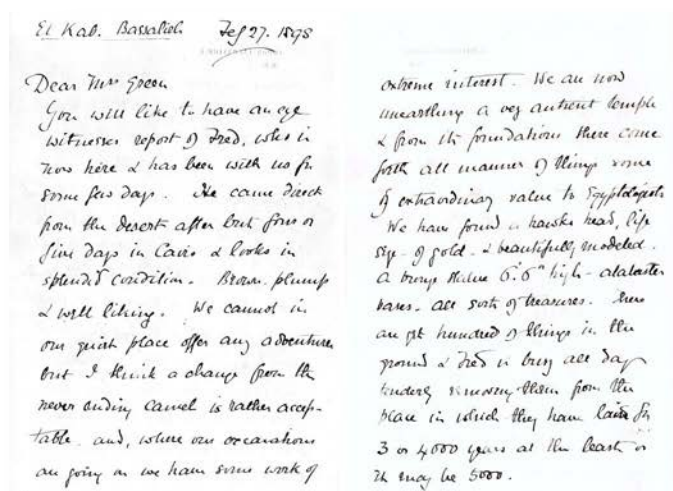 El Kab. Bassalieh Feb 27. 1898
Dear Mrs Green
You will like to have an eye
witnesses report of Fred, who is
now here & has been with us for
some few days. He came direct
from the desert after but four or
five days in Cairo & looks in
splendid condition. Brown, plump
& well liking. We cannot in
our quiet place offer any adventures
but I think a change from the
never ending camel is rather accep-
table. and, where our excavations
are going on we have some work of
extreme interest. We are now
unearthing a very antient temple
& from its foundations there come
forth all manner of things some
of extraordinary value to Egyptologists
We have found a hawks head, life
size - of gold - & beautifully modeled.
a bronze statue 6'.6" high - alabaster
vases. all sorts of treasures. There
are yet hundred of things in the
ground & Fred is busy all day
tenderly removing them from the
place in which they have lain for
3 or 4000 years at the least or
it may be 5000.